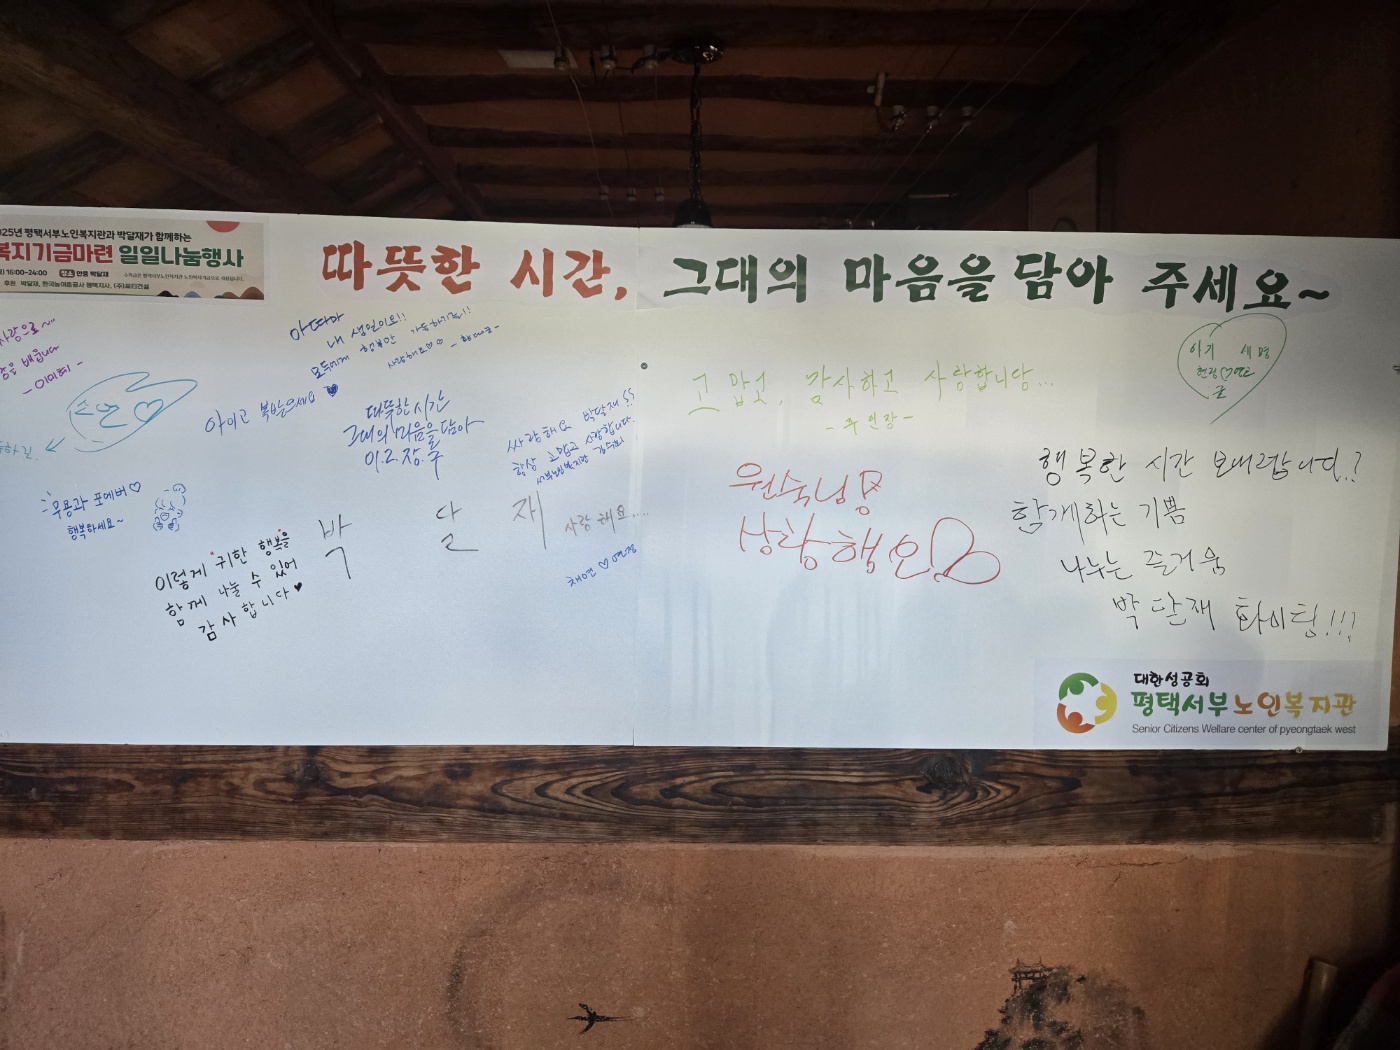 025년 평택서부노인복지관과 박달재가 함께하는
복지기금마련 일일나눔행사
16:00~24:00 장소 안중 박달재
후원 박달재, 한국농어촌공사 평택지사,
따뜻한 시간, 그대의 마음을 담아 주세요~
사랑으로~
배웁니다
- 이미희 -
아따마
내 생일이오!!
모두에게 행복만 가득하기를!!
사랑해요♡♡
아이고 복받으세요 ♥
따뜻한 시간
그대의 마음을 담아
이.고.장.국
싸랑해요 박달재 !!
항상 고맙고 사랑합니다.
서부노인복지관
우용과 포에버♡
행복하세요~
이렇게 귀한 행복을
함께 나눌 수 있어
감사합니다♥
박 달 재
사랑해요....
채연♡
고맙고, 감사하고 사랑합니당...
- 주인장 -
원숙님
상랑행요
아기 새명
행복한 시간 보내랍니다.?
함께하는 기쁨
나누는 즐거움
박달재 화이팅!!!
대한성공회
평택서부노인복지관
Senior Citizens Welfare center of pyeongtaek west